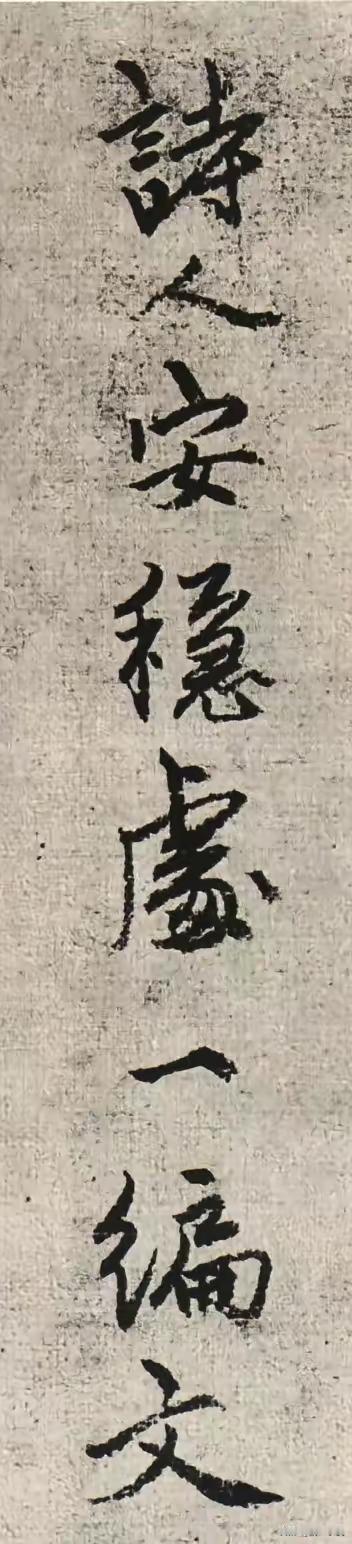 詩人安穩處一編文